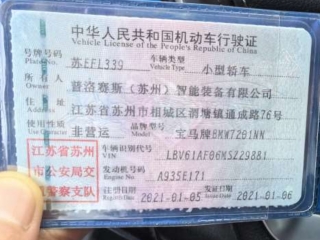 中华人民共和国机动车行驶证
Vehicle License of the People's Republic of China
号牌号码 苏EFL339 车辆类型 小型轿车
Plate No. Vehicle Type
所有人 普洛赛斯（苏州）智能装备有限公司
Owner
住址 江苏省苏州市相城区渭塘镇通成路76号
Address
使用性质 非营运 品牌型号 宝马牌BMW7201NN
Use Character Model
江苏省苏州市公安局交警察支队
车辆识别代号 LBV61AF06MSZ29881
VIN
发动机号码 A935E171
Engine No.
注册日期 2021-01-05 发证日期 2021-01-06
Register Date Issue Date